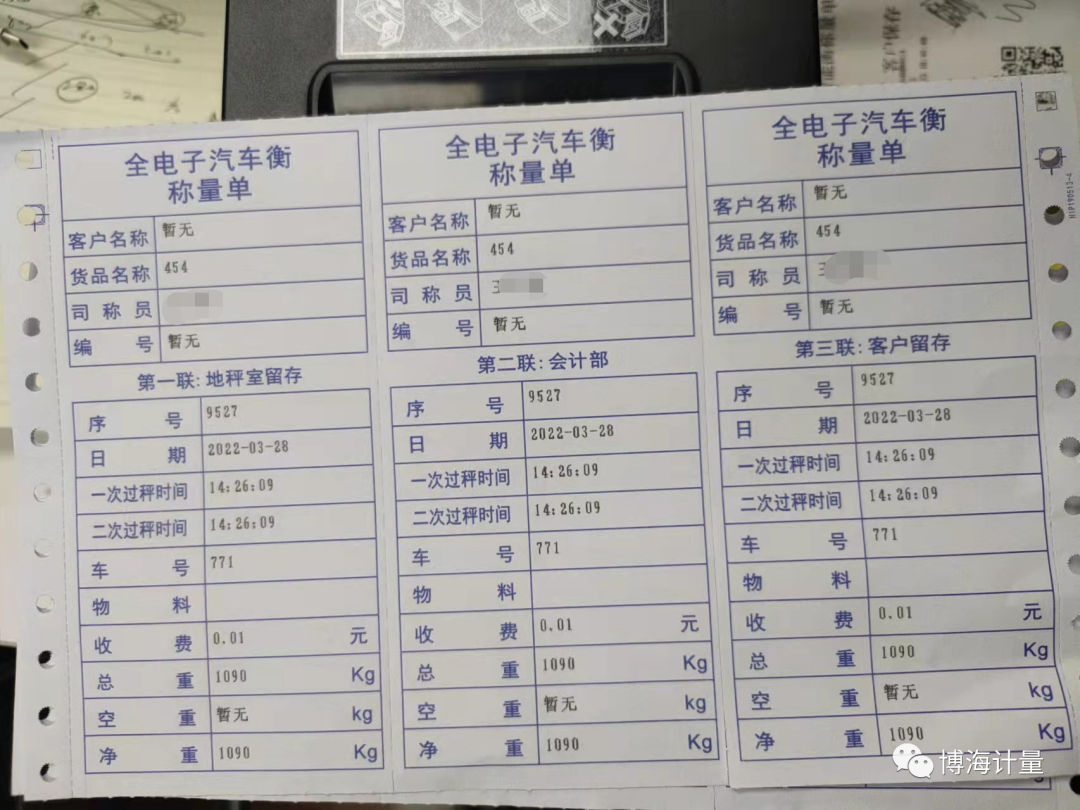 全电子汽车衡
称量单
客户名称 暂无
货品名称 454
司称员
编号 暂无
第一联:地秤室留存
序号 9527
日期 2022-03-28
一次过秤时间 14:26:09
二次过秤时间 14:26:09
车号 771
物料
收费 0.01 元
总重 1090 Kg
空重 暂无 kg
净重 1090 Kg
全电子汽车衡
称量单
客户名称 暂无
货品名称 454
司称员
编号 暂无
第二联:会计部
序号 9527
日期 2022-03-28
一次过秤时间 14:26:09
二次过秤时间 14:26:09
车号 771
物料
收费 0.01 元
总重 1090 Kg
空重 暂无 kg
净重 1090 Kg
全电子汽车衡
称量单
客户名称 暂无
货品名称 454
司称员
编号 暂无
第三联:客户留存
序号 9527
日期 2022-03-28
一次过秤时间 14:26:09
二次过秤时间 14:26:09
车号 771
物料
收费 0.01 元
总重 1090 Kg
空重 暂无 kg
净重 1090 Kg
H1P190513-4
博海计量